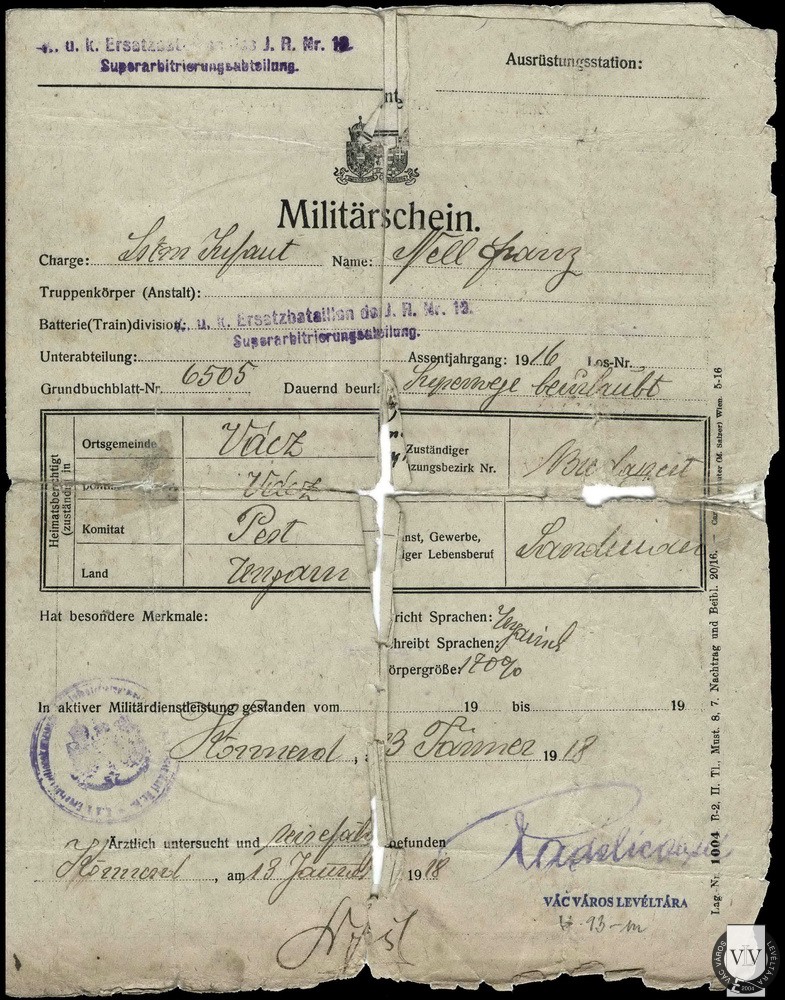 k. u. k. Ersatzbat J. R. Nr. 12
Superarbitrierungsabteilung.
Ausrüstungsstation:
Militärschein.
Charge: Name: Nell Franz
Truppenkörper (Anstalt):
Batterie(Train)division k. u. k. Ersatzbataillon des J. R. Nr. 12.
Superarbitrierungsabteilung.
Unterabteilung: Assentjahrgang: 1916 Los-Nr.
Grundbuchblatt-Nr. 6505 Dauernd beurla beurlaubt
Heimatsberechtigt (zuständig) in
Ortsgemeinde Vácz Zuständiger
zungsbezirk Nr. Budapest
Vácz
Komitat Pest nst, Gewerbe,
iger Lebensberuf
Land Ungarn
Hat besondere Merkmale: richt Sprachen: Ungarisch
hreibt Sprachen:
örpergröße:
In aktiver Militärdienstleistung gestanden vom 19 bis 19
Körmend, 3 Jänner 1918
Ärztlich untersucht und befunden
Körmend, am 13 1918
VÁC VÁROS LEVÉLTÁRA
Lag.-Nr. 1004 B-2, II. Tl., Must. 8, 7. Nachtrag und Beibl. 20/16. (M. Salzer) Wien. 5-16
VÁC VÁROS LEVÉLTÁRA
VLV
2004